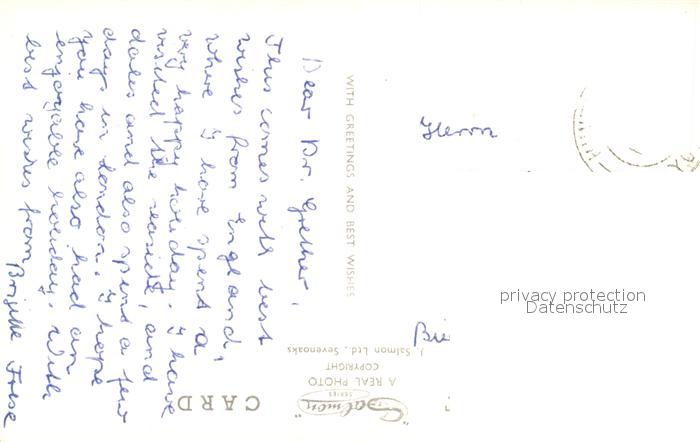 Dear Dr. Grether,
This comes with best
wishes from England,
where I have spent a
very happy holiday. I have
visited the seaside, and
dales and also spent a few
days in London. I hope
you have also had an
enjoyable holiday. With
best wishes from
Brigitte
WITH GREETINGS AND BEST WISHES
Herrn
privacy protection
Datenschutz
CARD
"Salmon"
SERIES
A REAL PHOTO
COPYRIGHT
J. Salmon Ltd., Sevenoaks